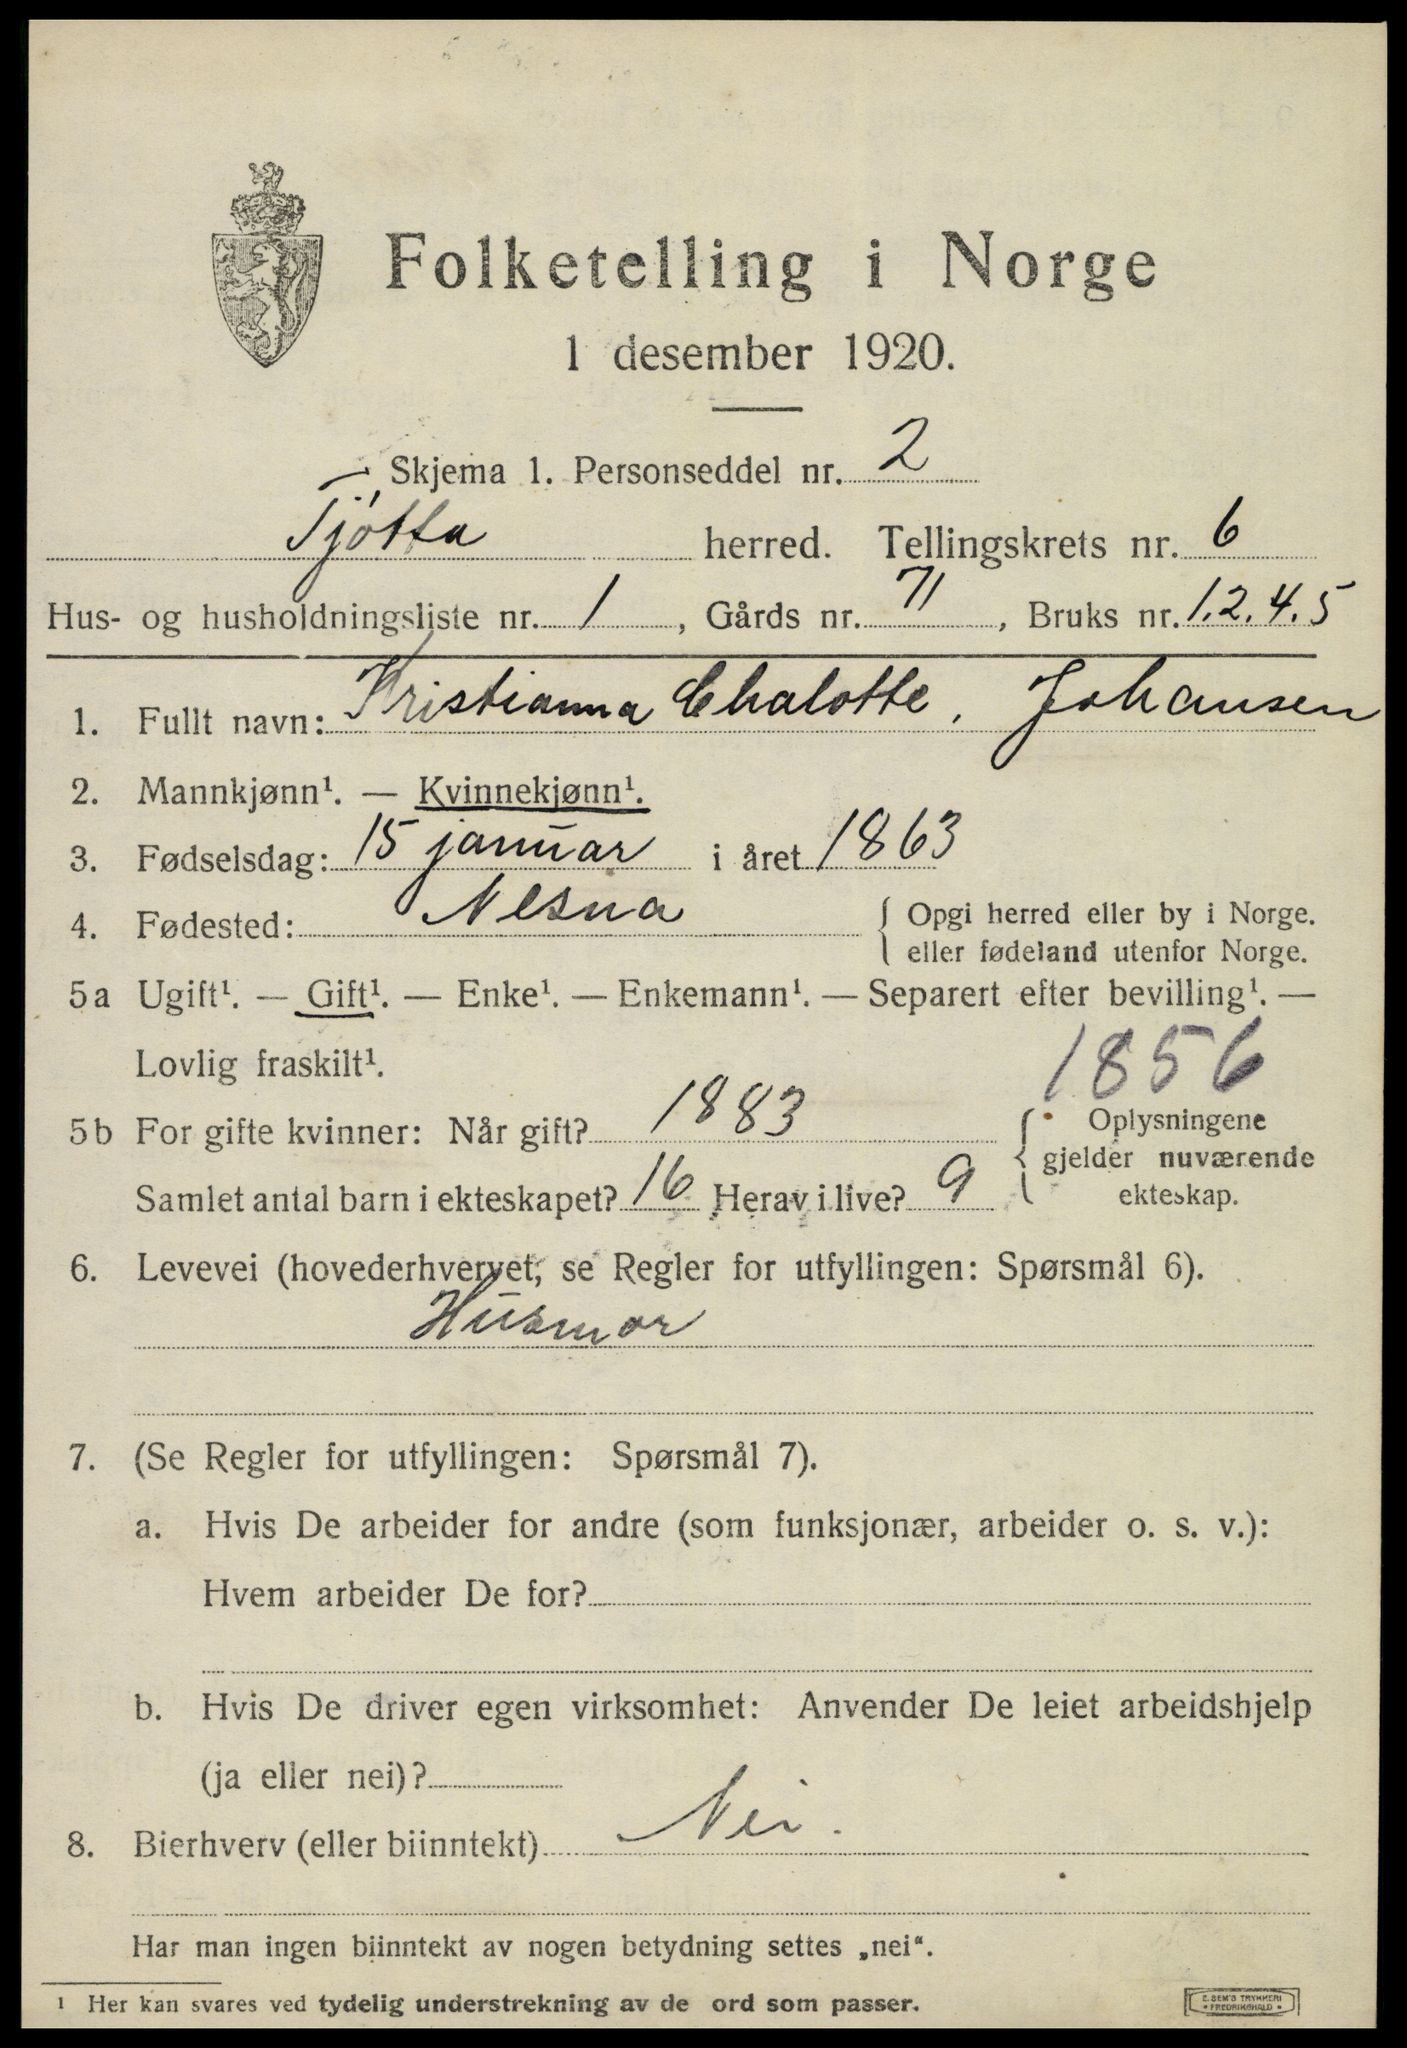 Folketelling i Norge
1 desember 1920.
Skjema 1. Personseddel nr. 2
Tjøtta herred. Tellingskrets nr. 6
Hus- og husholdningsliste nr. 1, Gårds nr. 71, Bruks nr. 1.2.4.5
1. Fullt navn: Kristianna Chalotte, Johansen
2. Mannkjønn¹. — Kvinnekjønn¹.
3. Fødselsdag: 15 januar i året 1863
4. Fødested: Nesna { Opgi herred eller by i Norge.
eller fødeland utenfor Norge.
5a Ugift¹. — Gift¹. — Enke¹. — Enkemann¹. — Separert efter bevilling¹. —
Lovlig fraskilt¹.
1856
5b For gifte kvinner: Når gift? 1883 { Oplysningene
gjelder nuværende
Samlet antal barn i ekteskapet? 16 Herav i live? 9 ekteskap.
6. Levevei (hovederhvervet, se Regler for utfyllingen: Spørsmål 6).
Husmor
7. (Se Regler for utfyllingen: Spørsmål 7).
a. Hvis De arbeider for andre (som funksjonær, arbeider o. s. v.):
Hvem arbeider De for?
b. Hvis De driver egen virksomhet: Anvender De leiet arbeidshjelp
(ja eller nei)?
8. Bierhverv (eller biinntekt) Nei.
Har man ingen biinntekt av nogen betydning settes „nei“.
¹ Her kan svares ved tydelig understrekning av de ord som passer.
E. SEM'S TRYKKERI
• FREDRIKSHALD •